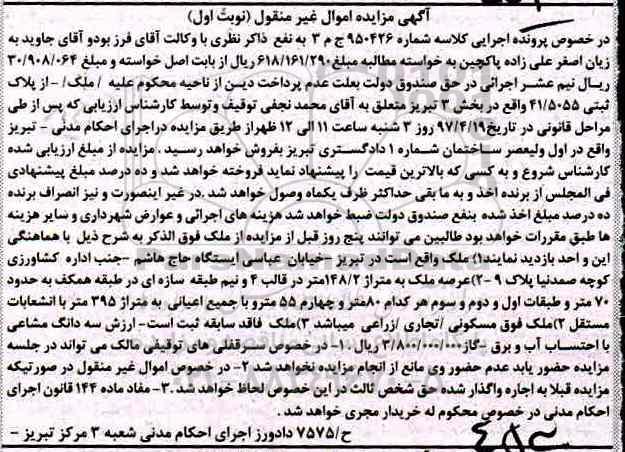 آگهی مزایده اموال غیر منقول (نوبت اول)
در خصوص پرونده اجرایی کلاسه شماره ۹۵۰۴۲۶ج م ۳ به نفع ذاکر نظری با وکالت آقای فرز بودو آقای جاوید به
زیان اصغر علی زاده پاکچین به خواسته مطالبه مبلغ۶۱۸/۱۶۱/۲۹۰ ریال از بابت اصل خواسته و مبلغ ۳۰/۹۰۸/۰۶۴
ریال نیم عشر اجرائی در حق صندوق دولت بعلت عدم پرداخت دین از ناحیه محکوم علیه / ملک/ -از پلاک
ثبتی ۴۱/۵۰۵۵ واقع در بخش ۳ تبریز متعلق به آقای محمد نجفی توقیف و توسط کارشناس ارزیابی که پس از طی
مراحل قانونی در تاریخ۹۷/۴/۱۹ روز ۳ شنبه ساعت ۱۱ الی ۱۲ ظهراز طریق مزایده دراجرای احکام مدنی - تبریز
واقع در اول ولیعصر ساختمان شماره ۱ دادگستری تبریز بفروش خواهد رسید . مزایده از مبلغ ارزیابی شده
کارشناس شروع و به کسی که بالاترین قیمت را پیشنهاد نماید فروخته خواهد شد و ده درصد مبلغ پیشنهادی
فی المجلس از برنده اخذ و به ما بقی حداکثر ظرف یکماه وصول خواهد شد .در غیر اینصورت و نیز انصراف برنده
ده درصد مبلغ اخذ شده بنفع صندوق دولت ضبط خواهد شد هزینه های اجرائی و عوارض شهرداری و سایر هزینه
ها طبق مقررات خواهد بود طالبین می توانند پنج روز قبل از مزایده از ملک فوق الذکر به شرح ذیل با هماهنگی
این و احد بازدید نمایند۱) ملک واقع است در تبریز -خیابان عباسی ایستگاه حاج هاشم -جنب اداره کشاورزی
کوچه صمدنیا پلاک ۹ -۲)عرصه ملک به متراژ ۱۴۸/۲متر در قالب ۴ و نیم طبقه سازه ای در طبقه همکف به حدود
۷۰ متر و طبقات اول و دوم و سوم هر کدام ۸۰متر و چهارم ۵۵ مترو با جمیع اعیانی به متراژ ۳۹۵ متر با انشعابات
مستقل ۲)ملک فوق مسکونی /تجاری /زراعی میباشد ۳)ملک فاقد سابقه ثبت است- ارزش سه دانگ مشاعی
با احتساب آب و برق -گاز ۳/۸۰۰/۰۰۰/۰۰۰ ریال .۱- در خصوص سرقفلی های توقیفی مالک می تواند در جلسه
مزایده حضور یابد عدم حضور وی مانع از انجام مزایده نخواهد شد ۲- در خصوص اموال غیر منقول در صورتیکه
مزایده قبلا به اجاره واگذار شده حق شخص ثالث در این خصوص لحاظ خواهد شد .۳- مفاد ماده ۱۴۴ قانون اجرای
احکام مدنی در خصوص محکوم له خریدار مجری خواهد شد .
ح/۷۵۷۵ دادورز اجرای احکام مدنی شعبه ۳ مرکز تبریز -